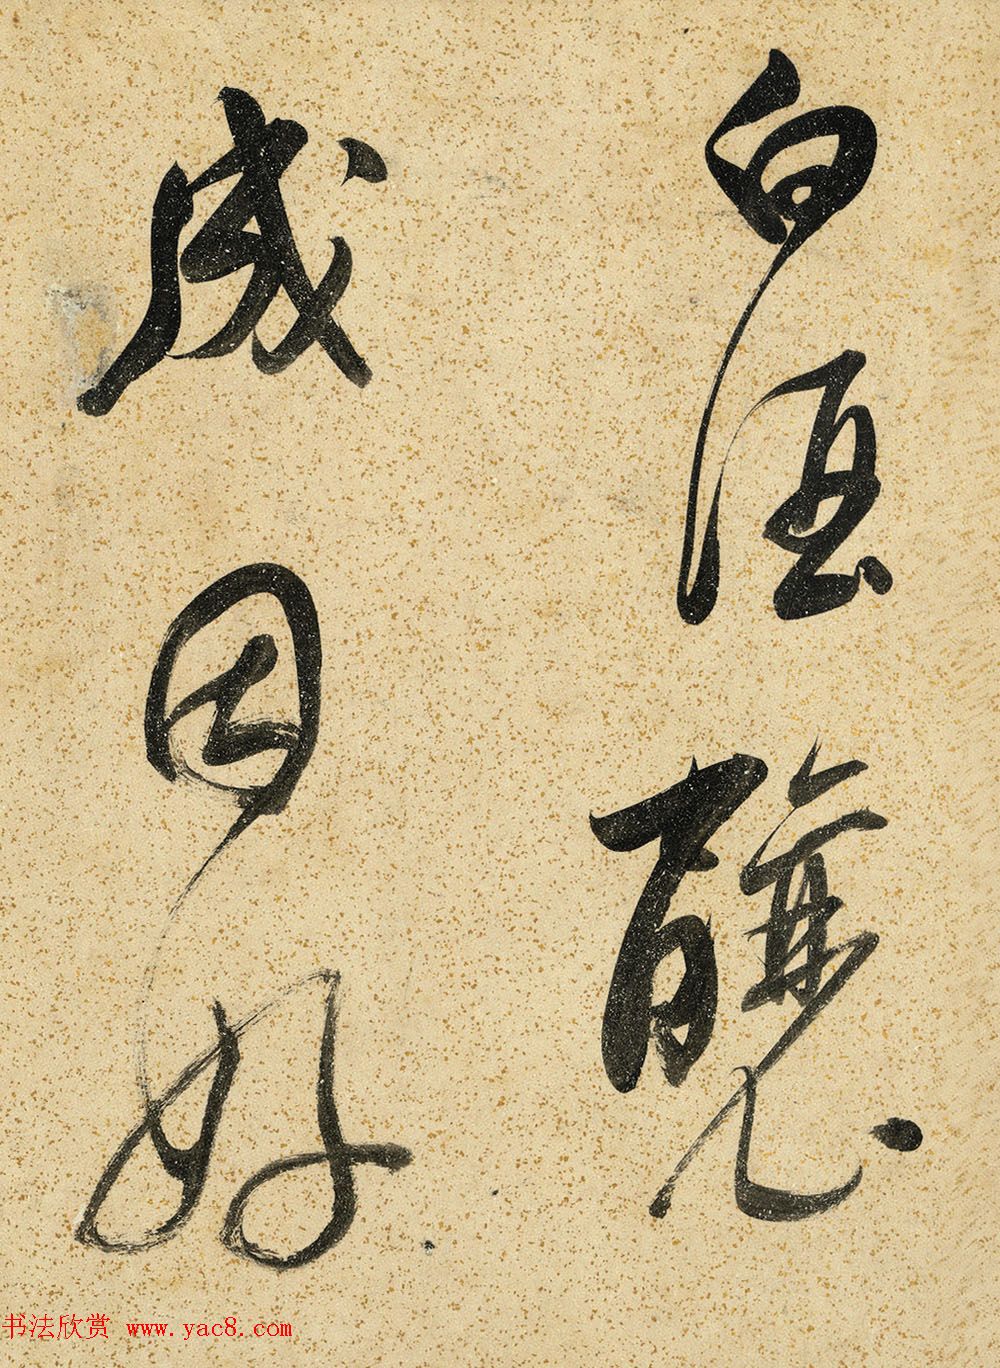 白酒釀
成因好
书法欣赏 www.yac8.com